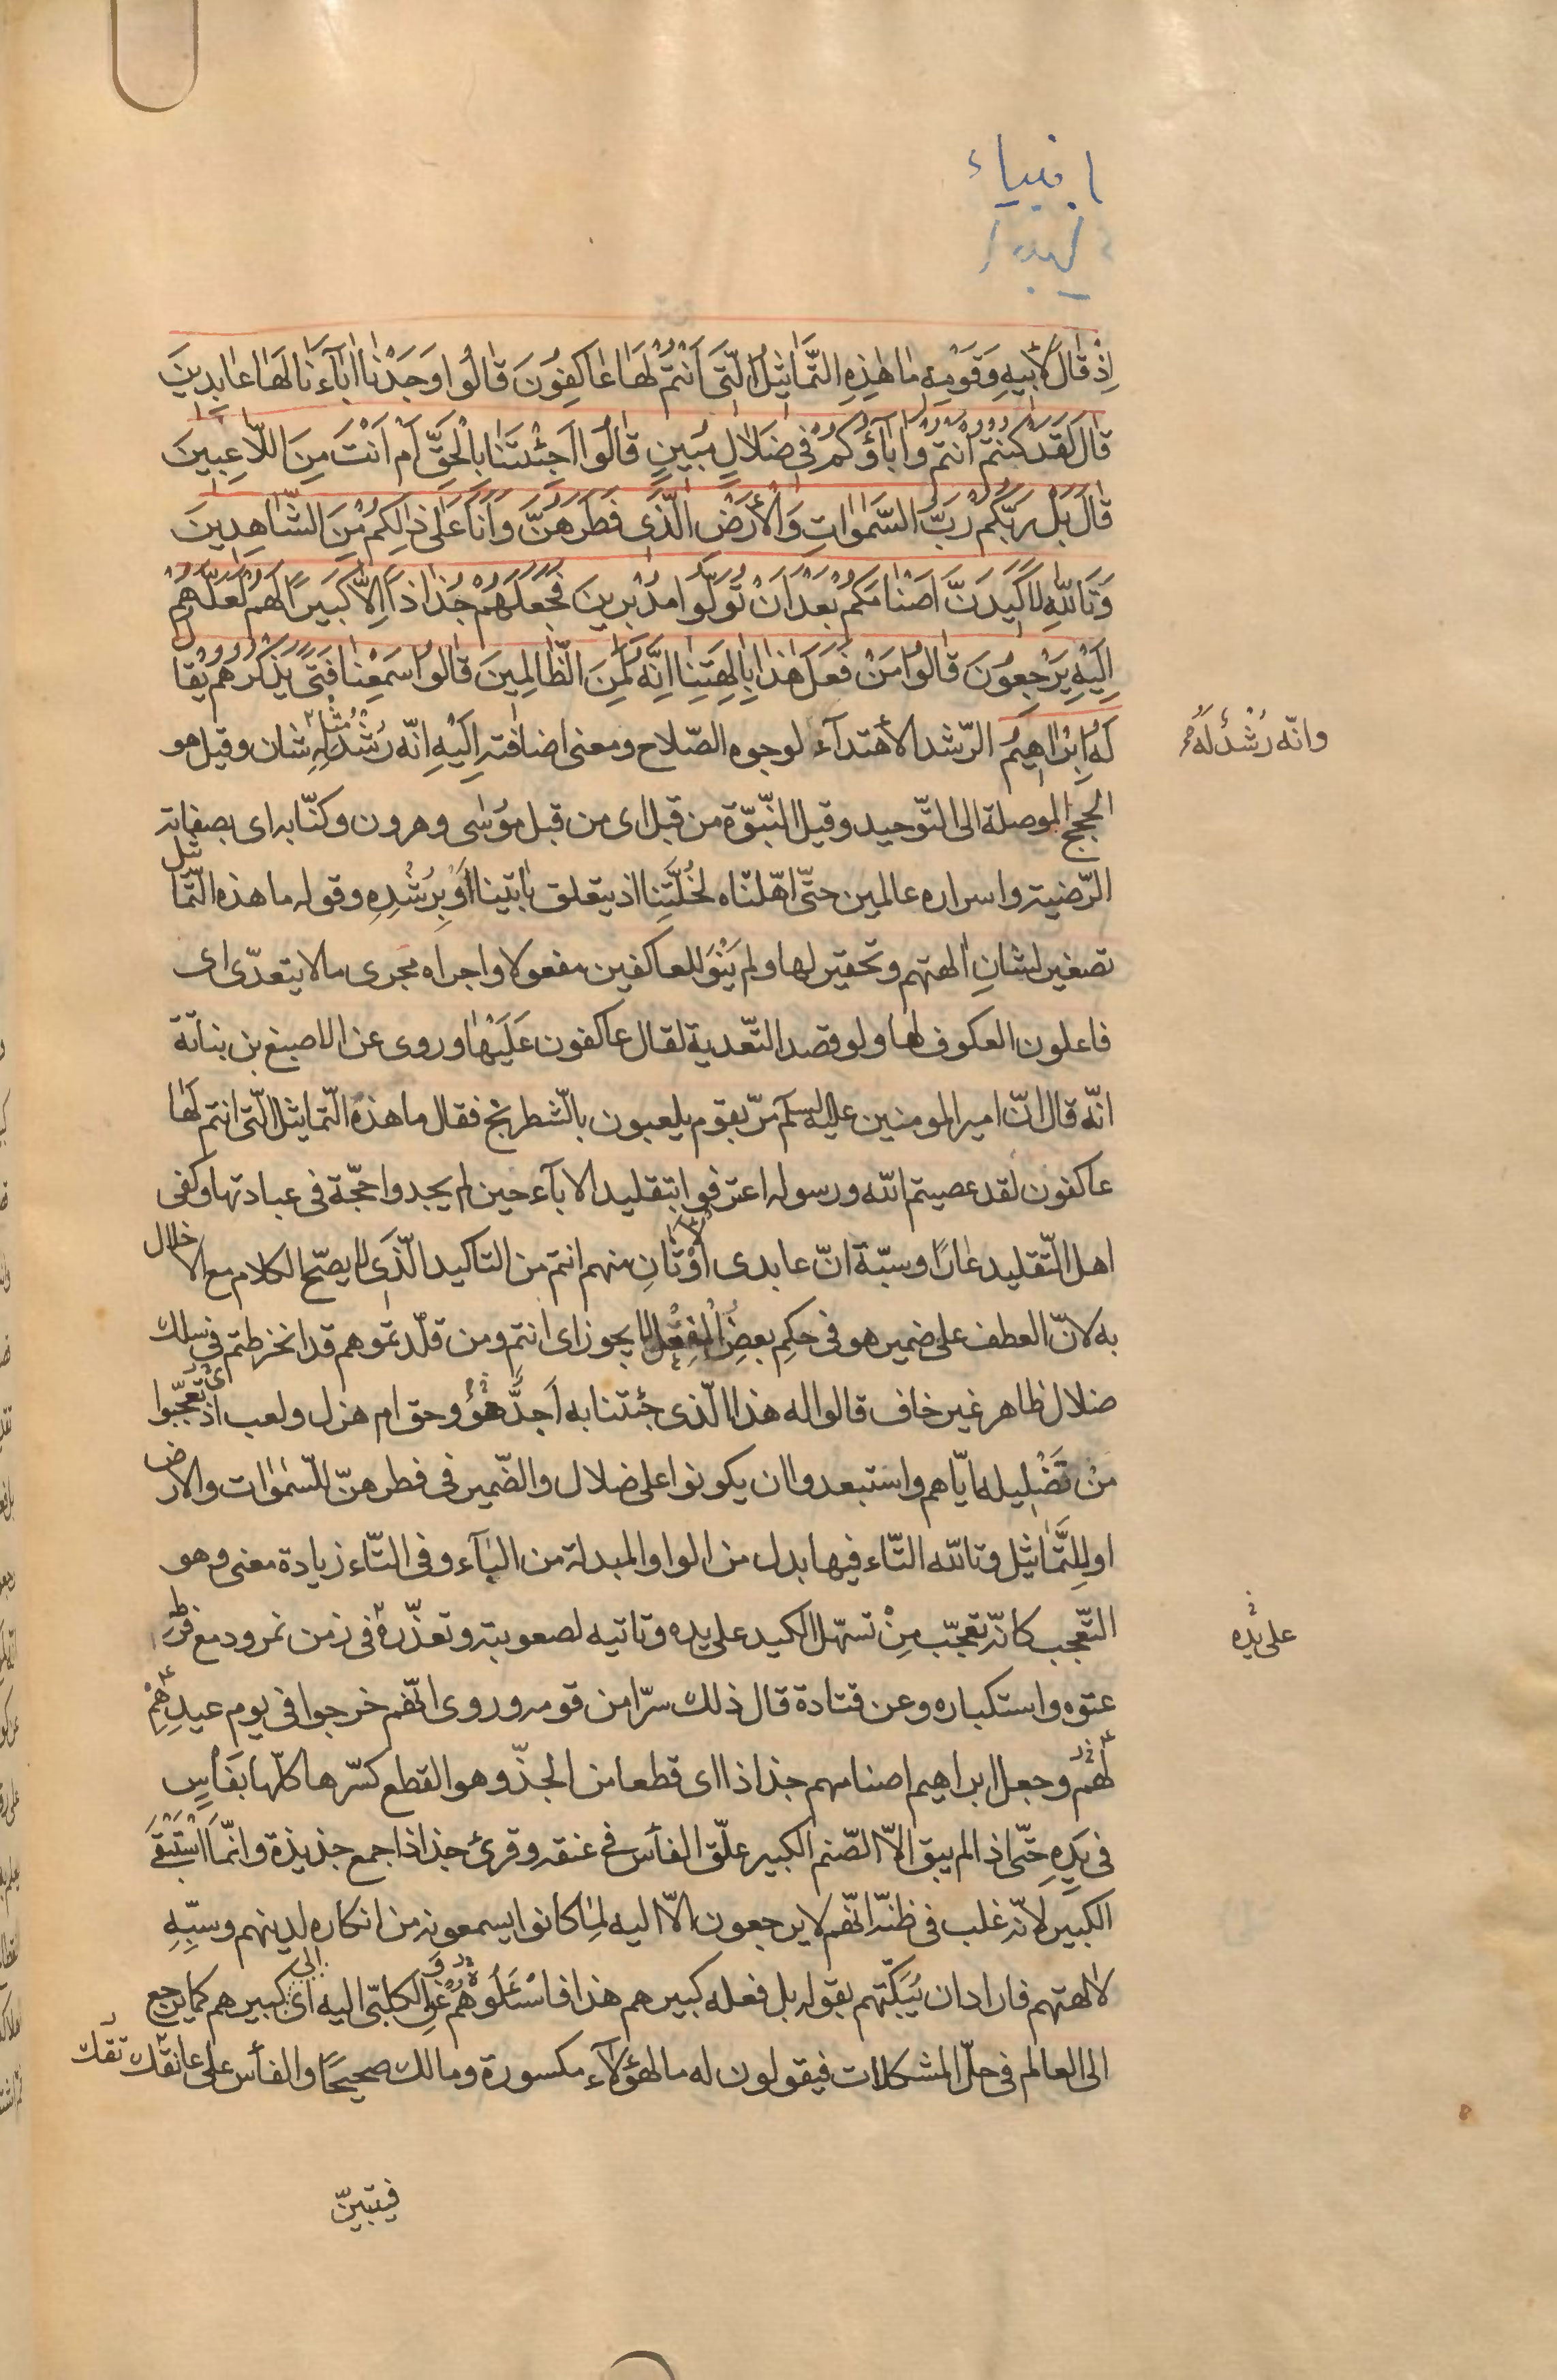 انبياء
اِذْ قَالَ لِاَبِيهِ وَقَوْمِهِ مَا هٰذِهِ التَّمَاثِيلُ الَّتِى اَنْتُمْ لَهَا عَاكِفُونَ قَالُوا وَجَدْنَا اٰبَآءَنَا لَهَا عَابِدِينَ
قَالَ لَقَدْ كُنْتُمْ اَنْتُمْ وَاٰبَآؤُكُمْ فِى ضَلَالٍ مُبِينٍ قَالُوا اَجِئْتَنَا بِالْحَقِّ اَمْ اَنْتَ مِنَ اللَّاعِبِينَ
قَالَ بَلْ رَبُّكُمْ رَبُّ السَّمٰوَاتِ وَالْاَرْضِ الَّذِى فَطَرَهُنَّ وَاَنَا عَلٰى ذٰلِكُمْ مِنَ الشَّاهِدِينَ
وَتَاللّٰهِ لَاَكِيدَنَّ اَصْنَامَكُمْ بَعْدَ اَنْ تُوَلُّوا مُدْبِرِينَ فَجَعَلَهُمْ جُذَاذًا اِلَّا كَبِيرًا لَهُمْ لَعَلَّهُمْ
اِلَيْهِ يَرْجِعُونَ قَالُوا مَنْ فَعَلَ هٰذَا بِاٰلِهَتِنَا اِنَّهُ لَمِنَ الظَّالِمِينَ قَالُوا سَمِعْنَا فَتًى يَذْكُرُهُمْ يُقَالُ
لَهُ اِبْرَاهِيمُ الرّشد الاهتدآء لوجوه الصّلاح ومعنى اضافته اِلَيْهِ انّه رُشْدُ مِثْلِهِ شان وقيل هو
وانّه رُشْدٌ لَهُ
الحجج الموصلة الى التّوحيد وقيل النّبوّة من قبل اى من قبل موسى وهرون وكنّا به اى بصفاته
الرّضيّة واسراره عالمين حتّى اهّلناه لخُلَّتِنا اذ يتعلق باٰتينا اَوْ بِرُشْدِهِ وقوله ما هذه التّماثيل
تصغير لشانِ اٰلهتهم وتحقير لها ولم يَنْوِ للعاكفين مفعولا واجراه مجرى ما لا يتعدّى اى
فاعلون العكوف لها ولو قصد التّعدية لقال عاكفون عَلَيْهَا وروى عن الاصبغ بن بناتة
انّه قال انّ امير المومنين عليه السلم مرّ بقوم يلعبون بالشّطرنج فقال ما هذه التّماثيل الّتى انتم لها
عاكفون لقد عصيتم اللّه ورسوله اعترفوا بتقليد الابآء حين لم يجدوا حجّة فى عبادتها وكفى
اهل التّقليد عَارًا وسبّة انّ عابدى اَوْثَانِ منهم انتم من التاكيد الَّذِى لا يصحّ الكلام مع الاخلال
به لانّ العطف على ضمير هو فى حكم بعضِ الفعل لا يجوز اى انتم ومن قلّدتموهم قد انخرطتم فى سلك
ضلال ظاهر غير خاف قالوا له هذا الّذى جئتنا به اَجدٌّ هُوَ وحق ام هزل ولعب اذ تعجّبوا
مِنْ تَضْلِيله ايّاهم واستبعدوا ان يكونوا على ضلال والضّمير فى فطرهنّ للسّمٰوات والارض
او للتَّمَاثيل وتاللّه التّاء فيها بدل من الواو المبدلة من البآء وفى التّاء زيادة معنى وهو
التّعجب كانّه تعجّب مِنْ تسهّل الكيد على يده وتاتيه لصعوبته وتعذّره فى زمن نمرود مع فرط
على يده
عتوه واستكباره وعن قتادة قال ذلك سرّا من قومه وروى انّهم خرجوا فى يوم عيدٍ هِمْ
لَهُمْ وجعل ابراهيم اصنامهم جذاذا اى قطعا من الجذّ وهو القطع كسّرها كلّها بفَاْسٍ
فى يَدِهِ حتّى اذا لم يبق الّا الصّنم الكبير علّق الفأس فى عنقه وقرئ جذاذا جمع جذيذة وانّمَا اسْتَبْقَى
الكبير لانّه غلب فى ظنّه انّهم لا يرجعون الّا اليه لِمَا كانوا يسمعونه من انكاره لدينهم وسبِّهِ
لاٰلهتهم فاراد ان يُبَكِّتَهم بقوله بل فعله كبيرهم هذا فاسْئَلُوهُمْ وعن الكلبّى اليه اى الى كبيرهم كما يرجع
الى العالم فى حلّ المشكلات فيقولون له ما لهؤلآء مكسورة ومالك صحيحًا والفأس على عاتقك
فيتبيّن